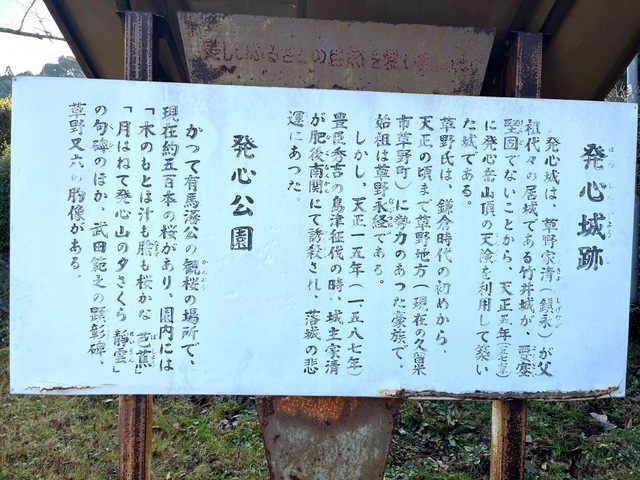 美しいふるさとの自然を愛しましょう
発心城跡
ほっしんじょうし
発心城は、草野家清(鎮永)が父
祖代々の居城である竹井城が、要塞
堅固でないことから、天正五年(一五七七)
に発心岳山頂の天険を利用して築い
た城である。
草野氏は、鎌倉時代の初めから、
天正の頃まで草野地方(現在の久留米
市草野町)に勢力のあった豪族で、
始祖は草野永経である。
しかし、天正一五年(一五八七年)
豊臣秀吉の島津征伐の時、城主家清
が肥後南関にて誘殺され、落城の悲
運にあった。
発心公園
かつて有馬藩公の観桜の場所で、
現在約五百本の桜があり、園内には
「木のもとは汁も膾も桜かな 芭蕉」
「月はねて発心山の夕さくら 靜雲」
の句碑のほか、武田範之の顕彰碑、
草野又六の胸像がある。